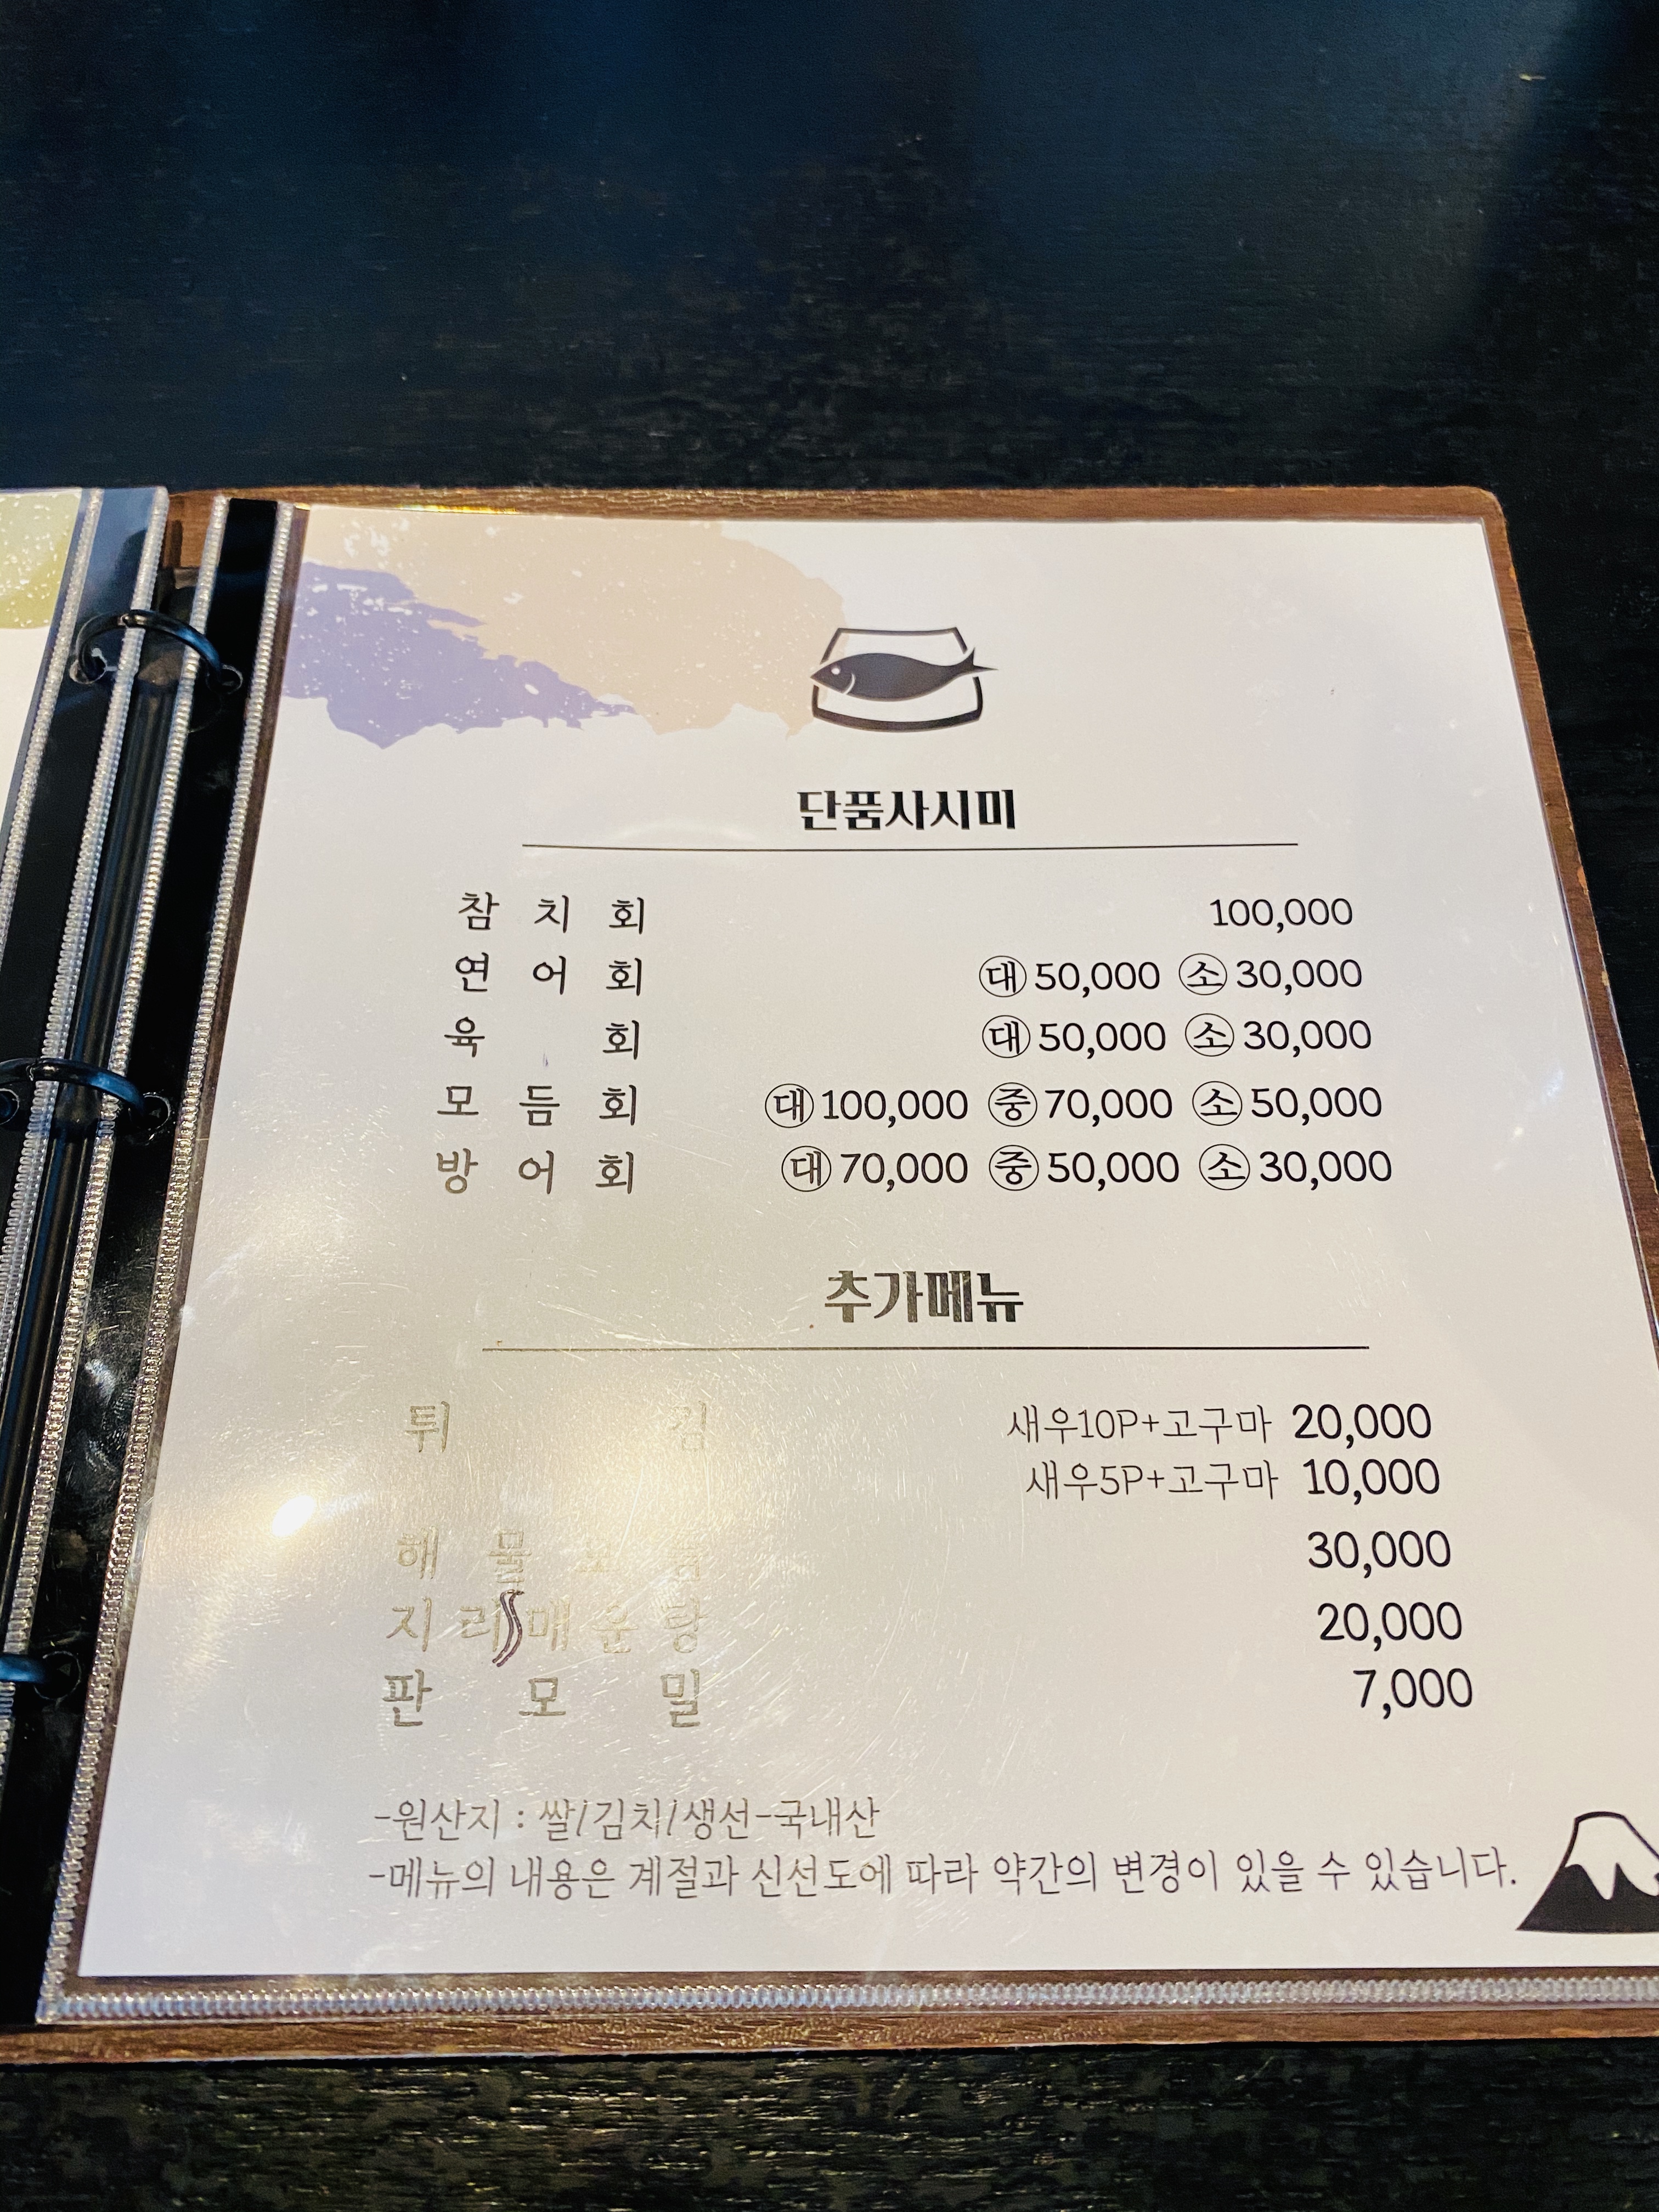 단품사시미
참 치 회 100,000
연 어 회 대 50,000 소 30,000
육 회 대 50,000 소 30,000
모 듬 회 대 100,000 중 70,000 소 50,000
방 어 회 대 70,000 중 50,000 소 30,000
추가메뉴
튀 김 새우10P+고구마 20,000
새우5P+고구마 10,000
해 물 모 듬 30,000
지 리 매 운 탕 20,000
판 모 밀 7,000
-원산지 : 쌀/김치/생선-국내산
-메뉴의 내용은 계절과 신선도에 따라 약간의 변경이 있을 수 있습니다.